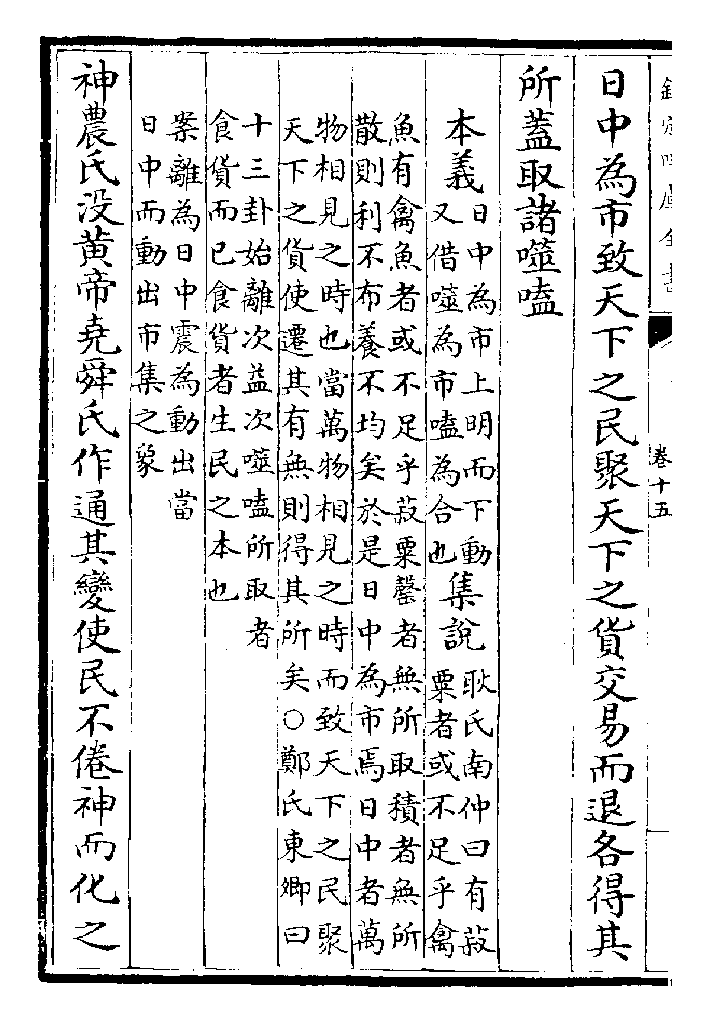 欽定四庫全書
卷十五
日中為市致天下之民聚天下之貨交易而退各得其
所蓋取諸噬嗑
本義
日中為市上明而下動
又借噬為市嗑為合也
集說
耿氏南仲曰有菽
粟者或不足乎禽
魚有禽魚者或不足乎菽粟罄者無所取積者無所
散則利不布養不均矣於是日中為市焉日中者萬
物相見之時也當萬物相見之時而致天下之民聚
天下之貨使遷其有無則得其所矣○鄭氏東卿曰
十三卦始離次益次噬嗑所取者
食貨而已食貨者生民之本也
案離為日中震為動出當
日中而動出市集之象
神農氏没黄帝堯舜氏作通其變使民不倦神而化之